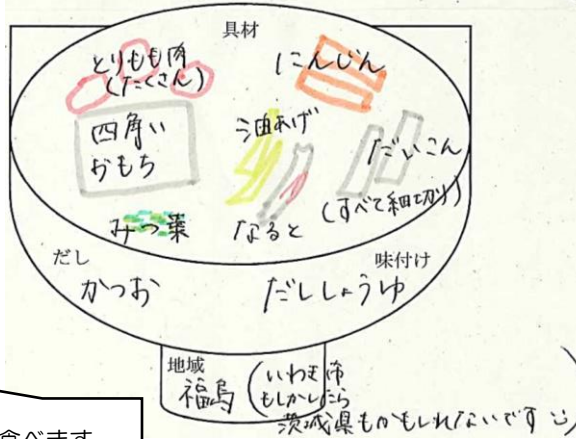 具材
とりもも肉
(たくさん)
にんじん
四角い
おもち
油あげ
だいこん
(すべて細切り)
みつ葉
なると
だし
かつお
味付け
だししょうゆ
地域
福島
(いわき市
もしかしたら
茨城県もかもしれないです)
食べます